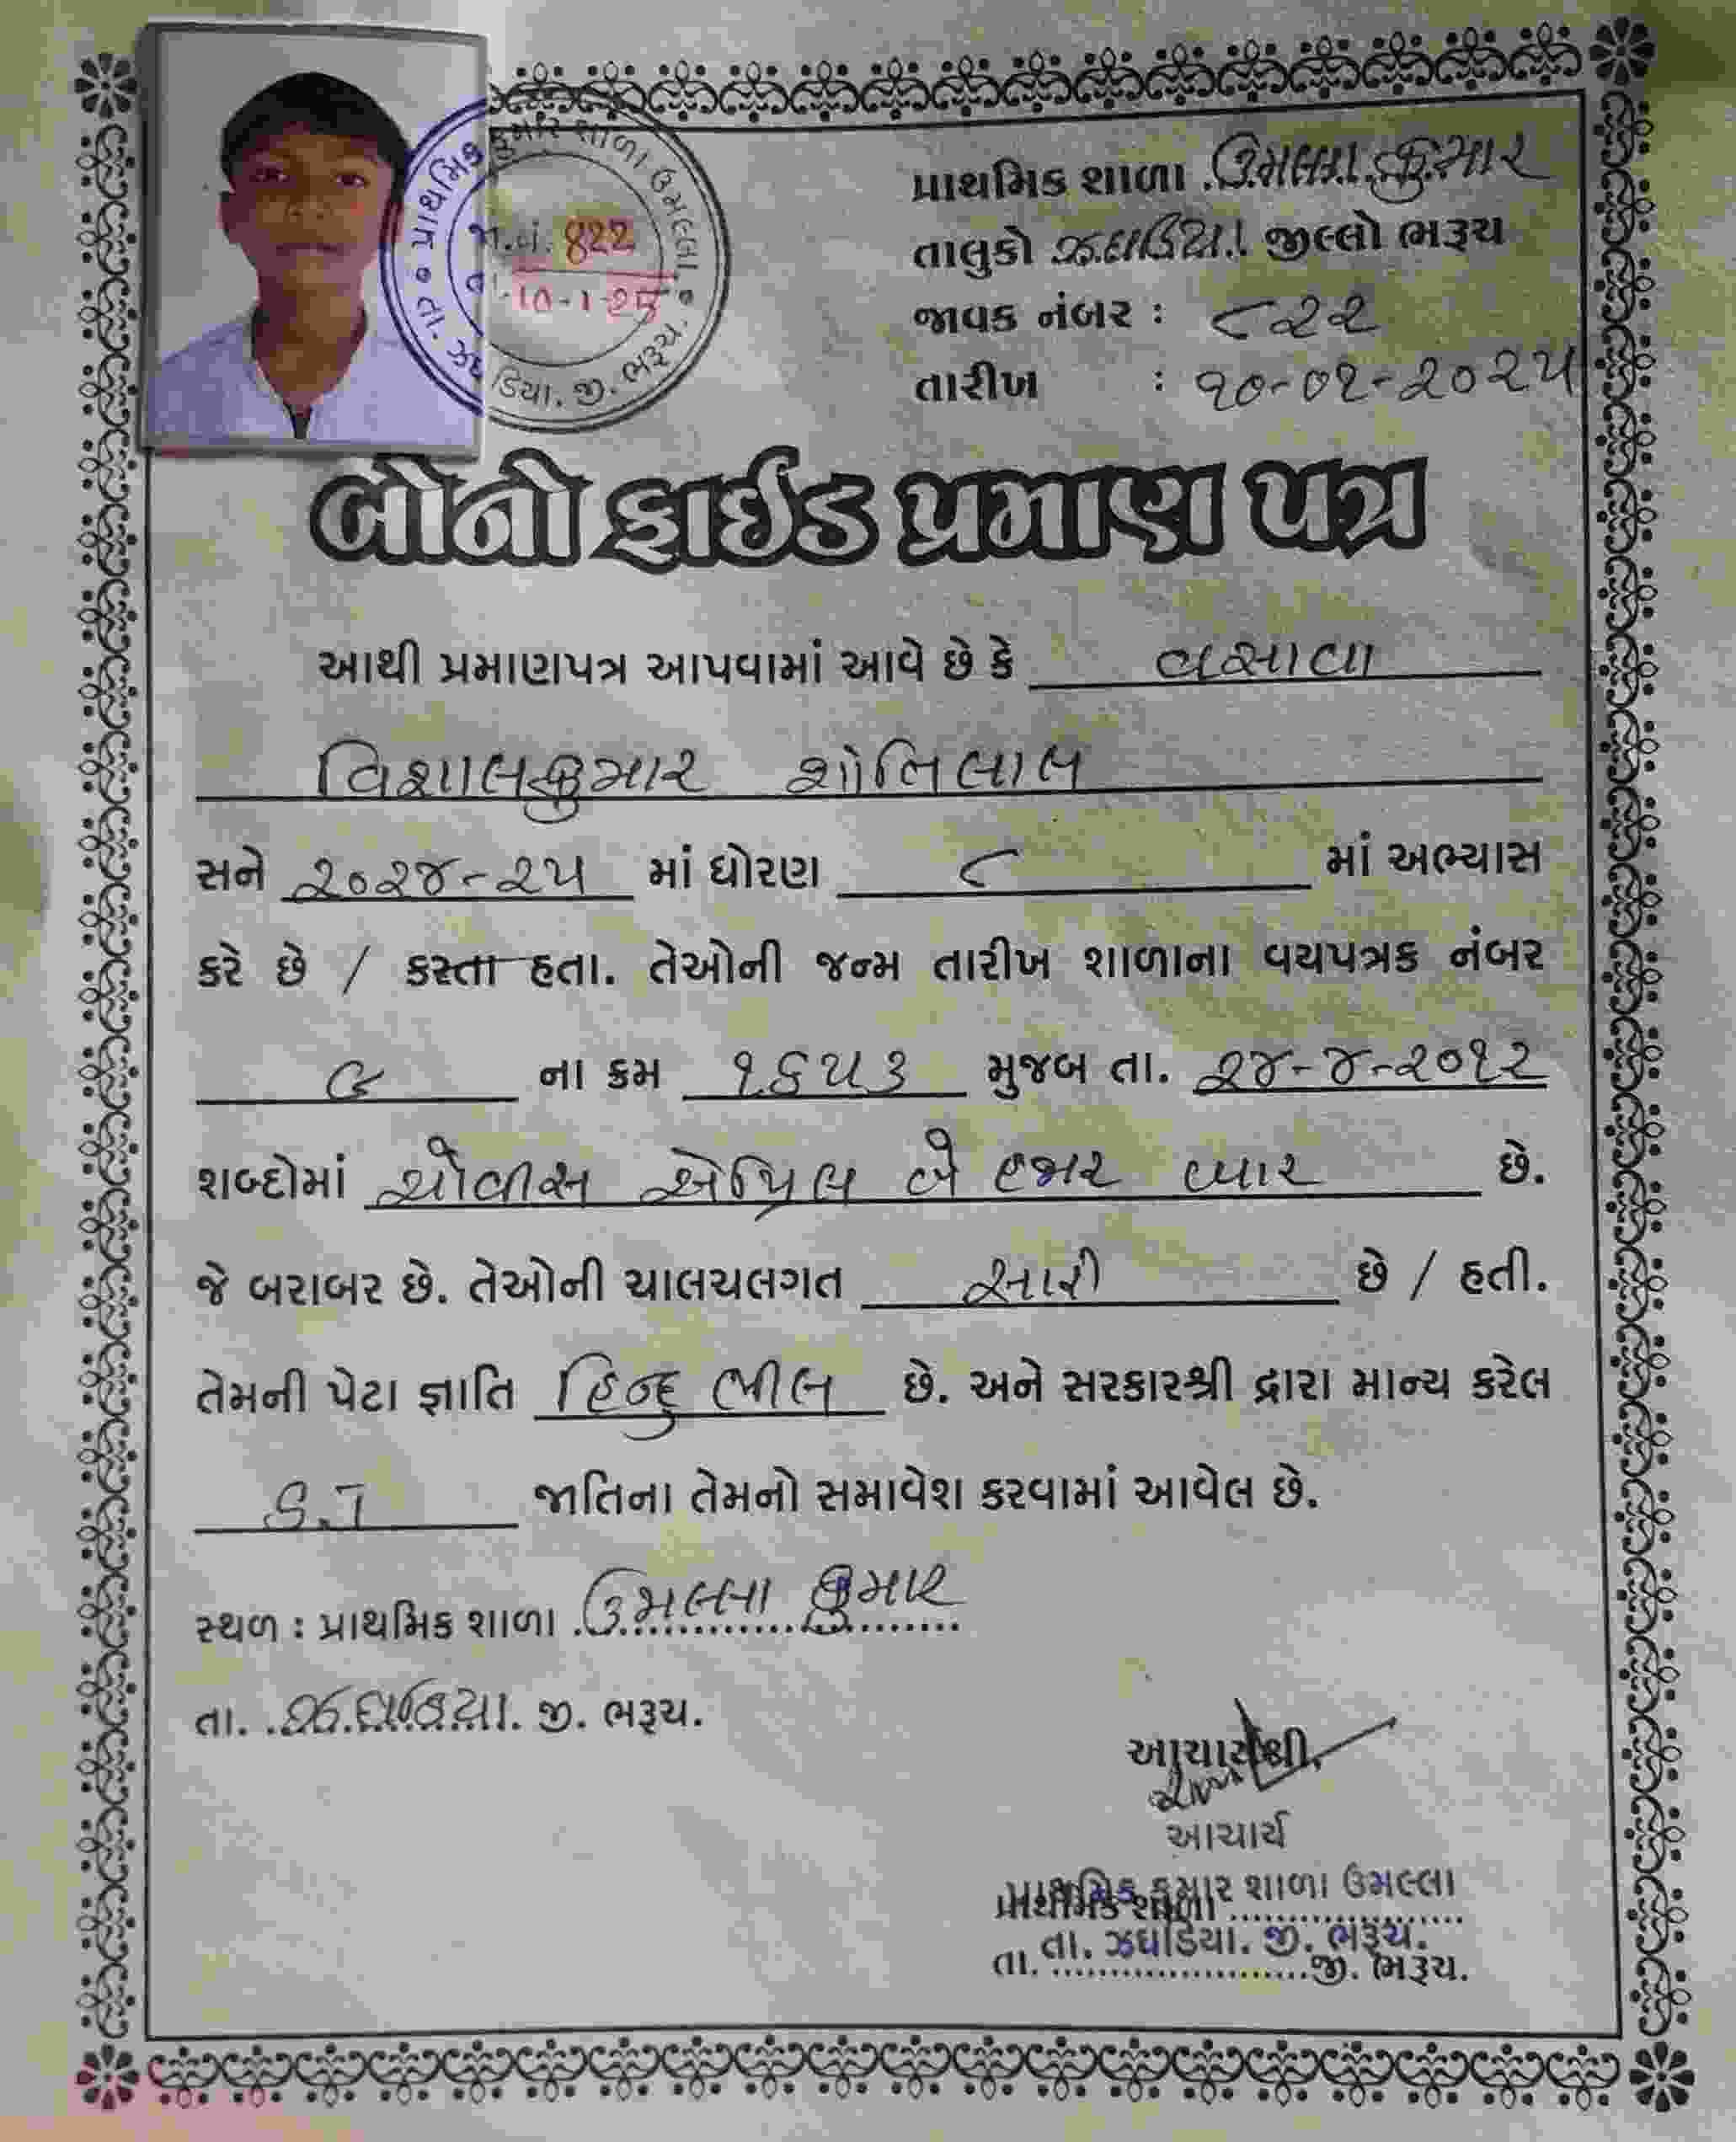 પ્રાથમિક કુમાર શાળા ઉમલ્લા
તા. ઝઘડિયા. જી. ભરૂચ.
જા.નં. 822
તા. 10-1-25
પ્રાથમિક શાળા ઉમલ્લા કુમાર
તાલુકો ઝઘડિયા જીલ્લો ભરૂચ
જાવક નંબર : ૮૨૨
તારીખ : ૧૦-૦૧-૨૦૨૫
બોનોફાઈડ પ્રમાણ પત્ર
આથી પ્રમાણપત્ર આપવામાં આવે છે કે વસાવા
વિશાલકુમાર શાંતિલાલ
સને ૨૦૨૪-૨૫ માં ધોરણ ૮ માં અભ્યાસ
કરે છે / કરતા હતા. તેઓની જન્મ તારીખ શાળાના વયપત્રક નંબર
૯ ના ક્રમ ૧૬૫૩ મુજબ તા. ૨૪-૪-૨૦૧૨
શબ્દોમાં ચોવીસ એપ્રિલ બે હજાર બાર છે.
જે બરાબર છે. તેઓની ચાલચલગત સારી છે / હતી.
તેમની પેટા જ્ઞાતિ હિન્દુ ભીલ છે. અને સરકારશ્રી દ્વારા માન્ય કરેલ
S.T જાતિના તેમનો સમાવેશ કરવામાં આવેલ છે.
સ્થળ : પ્રાથમિક શાળા ઉમલ્લા કુમાર
તા. ઝઘડિયા. જી. ભરૂચ.
આચાર્યશ્રી,
આચાર્ય
પ્રાથમિક કુમાર શાળા ઉમલ્લા
પ્રાથમિક શાળા
તા. ઝઘડિયા. જી. ભરૂચ.
તા. જી. ભરૂચ.